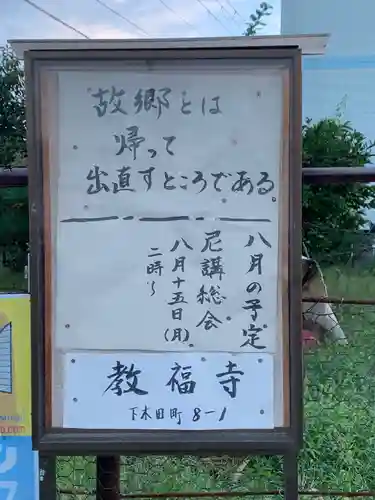 故郷とは
帰って
出直すところである。
八月の予定
尼講総会
八月十五日(月)
二時〜
教福寺
下木田町 8-1